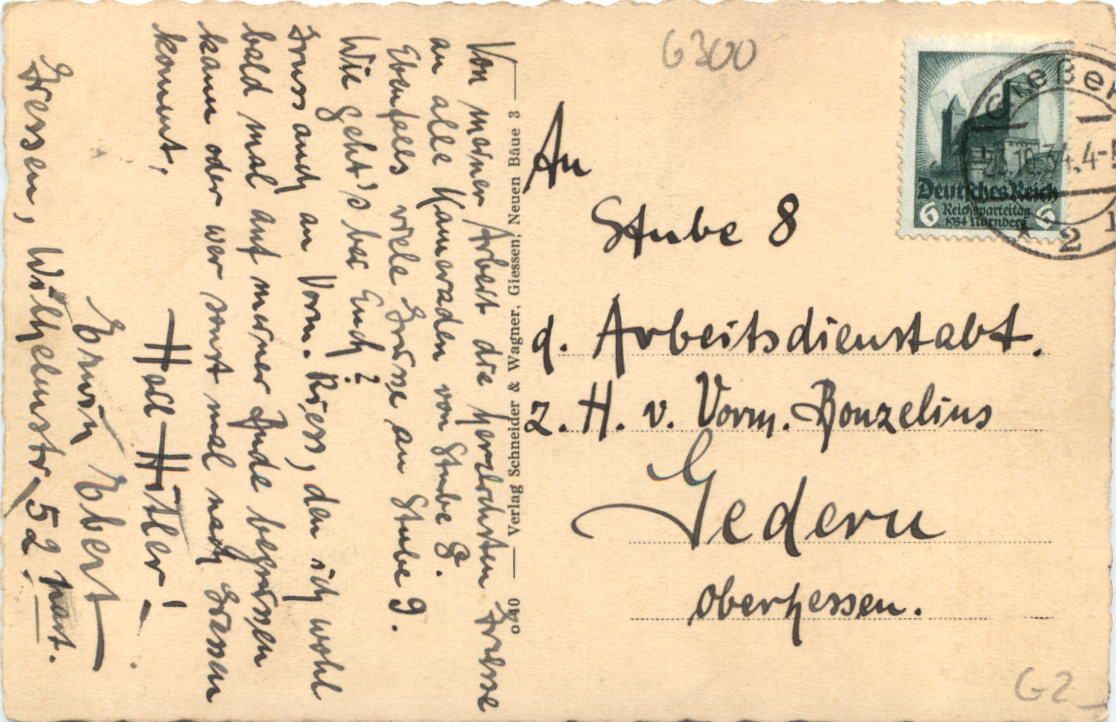 6300
Von meiner Arbeit die herzlichsten Grüsse
an alle Kameraden von Stube 8.
Ebenfalls viele Grüsse an Stube 9.
Wie geht's bei Euch?
Gruss auch an Vorm. Riess, den ich wohl
bald mal auf meiner Bude begrüssen
kann oder wer sonst mal nach Giessen
kommt,
Heil Hitler!
Erwin Ebert
Giessen, Wilhelmstr. 52 part.
0340 — Verlag Schneider & Wagner, Giessen, Neuen Bäue 3 —
An
Stube 8
d. Arbeitsdienstabt.
z. H. v. Vorm. Bonzelius
Gedern
Oberhessen.
Deutsches Reich
6 Reichsparteitag 6
1934 Nürnberg
Gießen
.10.34.4-5
* 2
G2